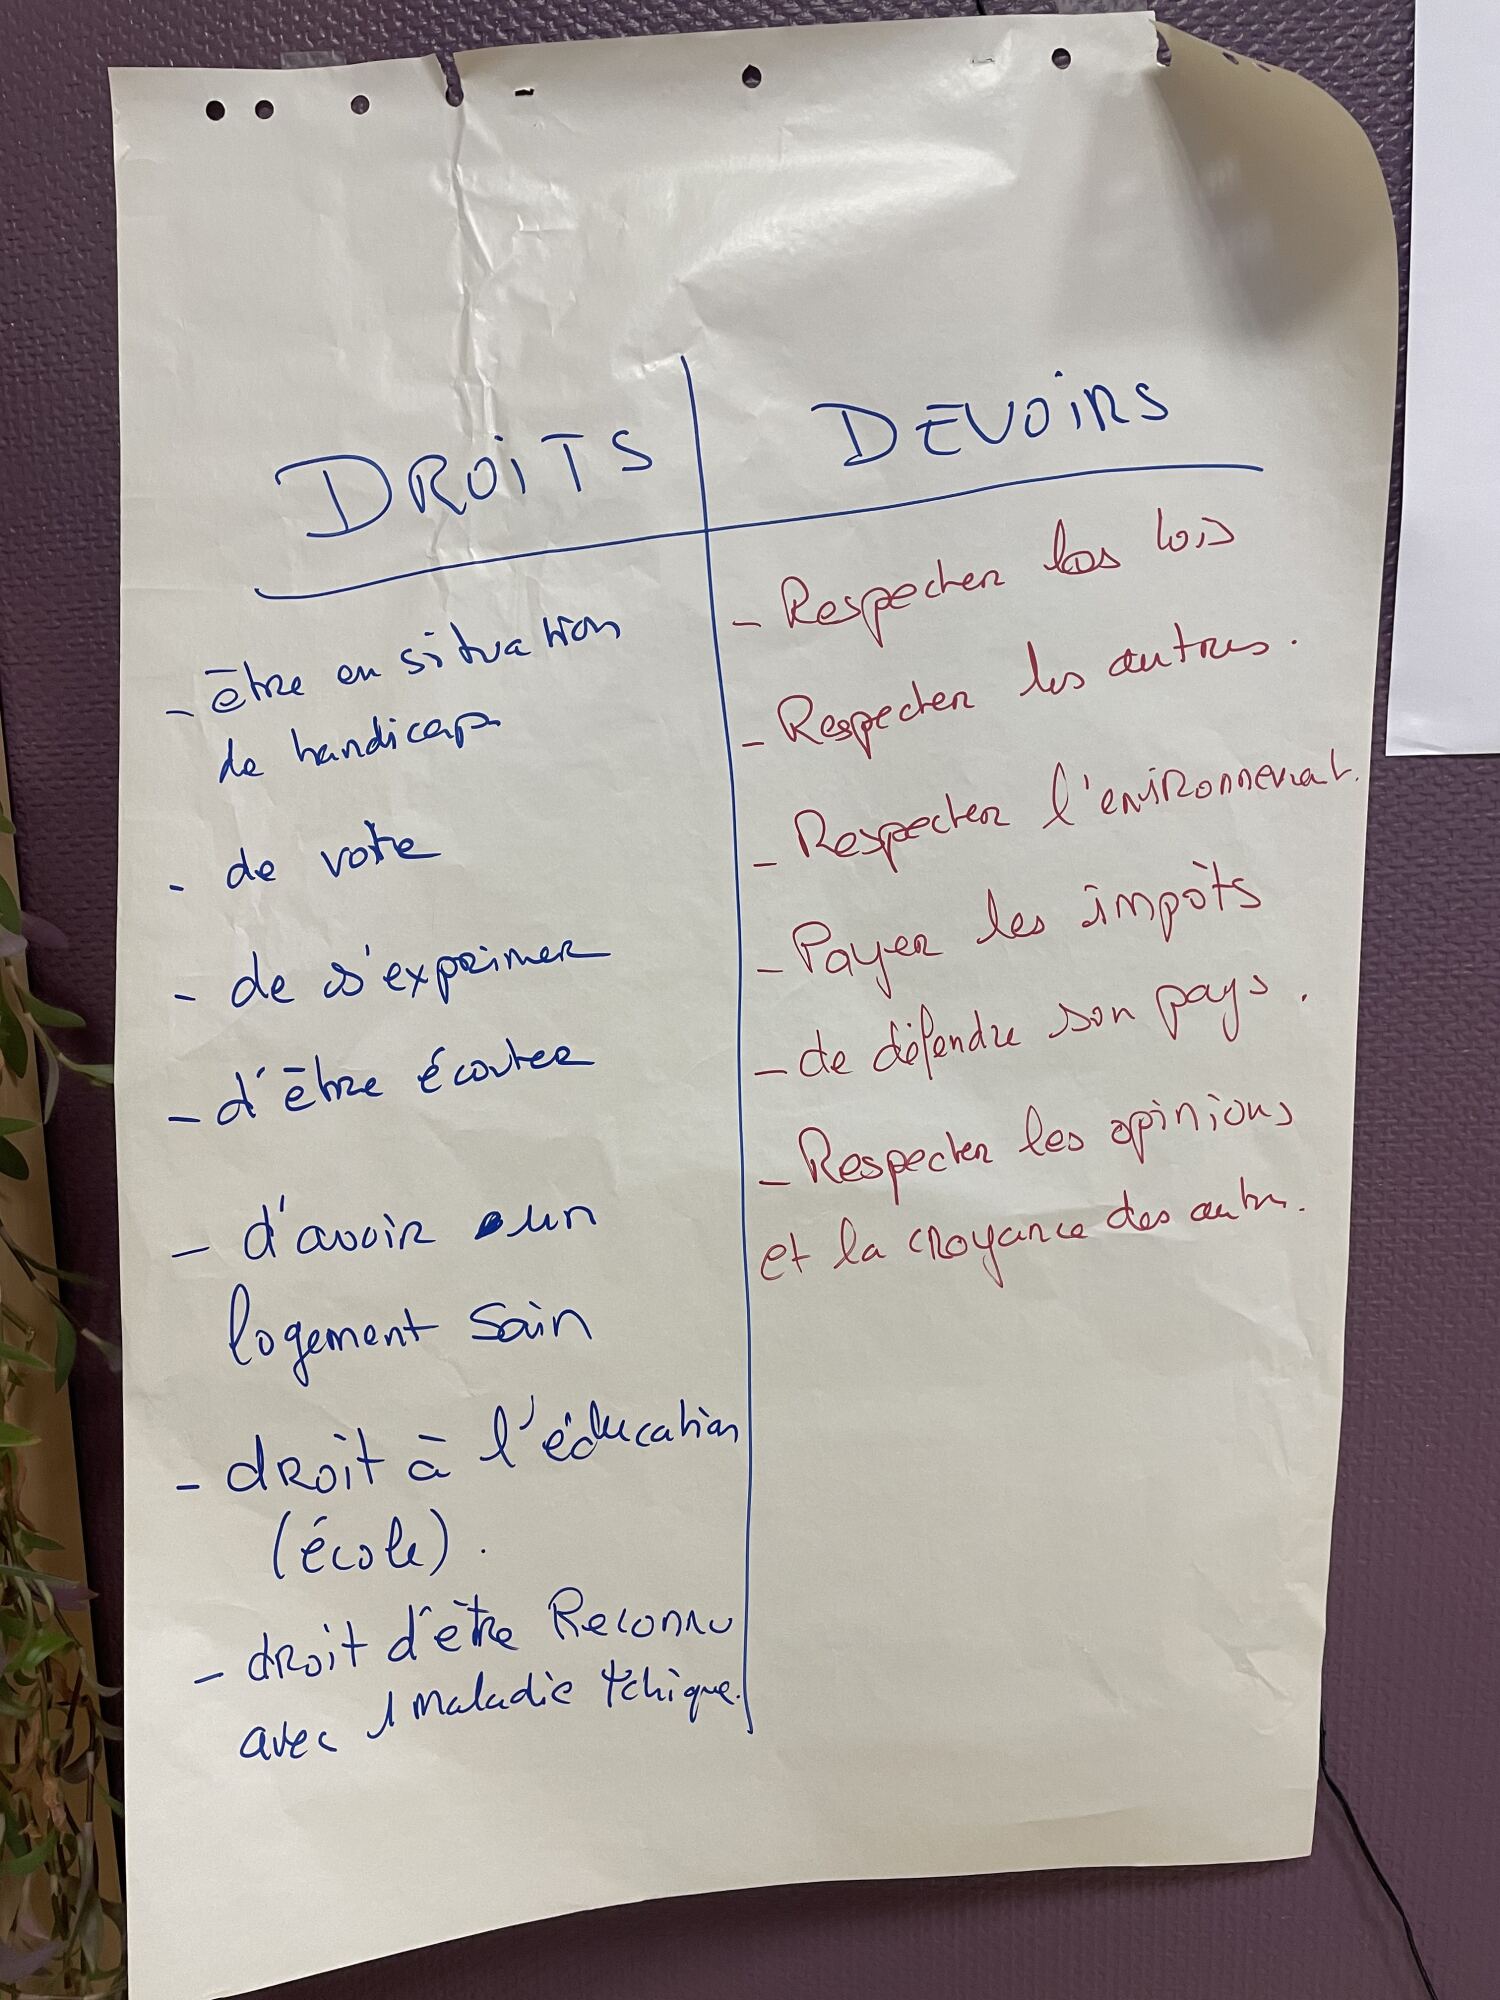 DROITS
- être en situation
de handicap
- de vote
- de s'exprimer
- d'être écouter
- d'avoir un
logement sain
- droit à l'éducation
(école).
- droit d'être Reconnu
avec 1 maladie
DEVOIRS
- Respecter les lois
- Respecter les autres.
- Respecter l'environnement.
- Payer les impôts
- de défendre son pays.
- Respecter les opinions
et la croyance des autres.